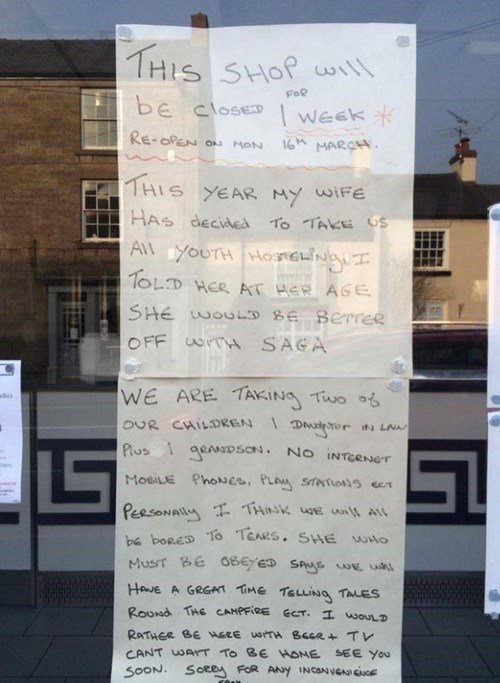 THIS SHOP will
be CLOSED FOR 1 WEEK *
RE-OPEN ON MON 16TH MARCH.
THIS YEAR MY WIFE
HAS decided TO TAKE US
All YOUTH HOSTELING. I
TOLD HER AT HER AGE
SHE WOULD BE BETTER
OFF WITH SAGA
WE ARE TAKING TWO of
OUR CHILDREN 1 DAUGHTER IN LAW
Plus 1 GRANDSON. NO INTERNET
MOBILE PHONES, PLAY STATIONS ECT
PERSONALLY I THINK WE WILL All
be BORED TO TEARS. SHE WHO
MUST BE OBEYED SAYS WE WILL
HAVE A GREAT TIME TELLING TALES
ROUND THE CAMPFIRE ECT. I WOULD
RATHER BE HERE WITH BEER + TV
CANT WAIT TO BE HOME SEE YOU
SOON. SORRY FOR ANY INCONVENIENCE